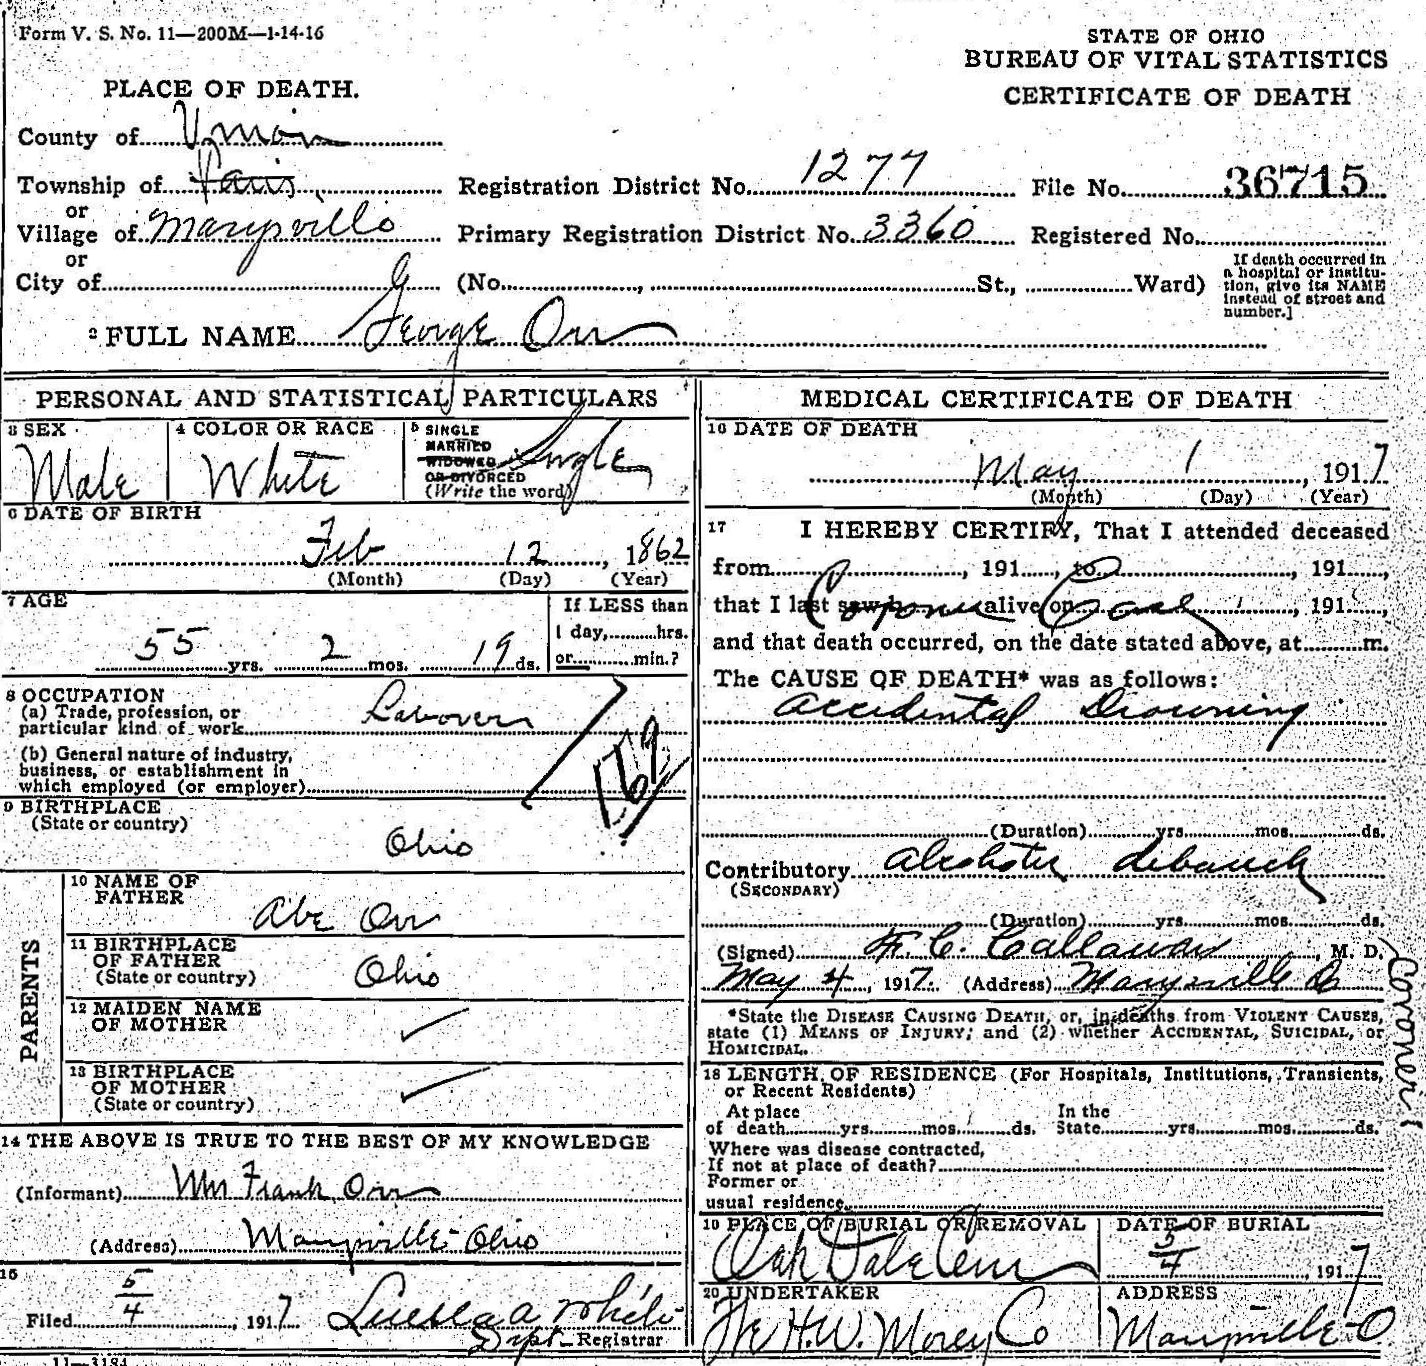 Form V. S. No. 11—200M—1-14-16
STATE OF OHIO
BUREAU OF VITAL STATISTICS
CERTIFICATE OF DEATH
PLACE OF DEATH.
County of Union
Township of Paris Registration District No. 1277 File No. 36715
or
Village of Marysville Primary Registration District No. 3360 Registered No.
or
City of (No. , St., Ward)
If death occurred in
a hospital or institu-
tion, give its NAME
instead of street and
number.]
2 FULL NAME George Orr
PERSONAL AND STATISTICAL PARTICULARS
3 SEX
Male
4 COLOR OR RACE
White
5 SINGLE
MARRIED
WIDOWED
OR DIVORCED
(Write the word)
Single
6 DATE OF BIRTH
Feb 12, 1862
(Month) (Day) (Year)
7 AGE
55 yrs. 2 mos. 19 ds.
If LESS than
1 day, hrs.
or min.?
8 OCCUPATION
(a) Trade, profession, or
particular kind of work Laborer
(b) General nature of industry,
business, or establishment in
which employed (or employer)
169
9 BIRTHPLACE
(State or country)
Ohio
PARENTS
10 NAME OF
FATHER
Abe Orr
11 BIRTHPLACE
OF FATHER
(State or country)
Ohio
12 MAIDEN NAME
OF MOTHER
13 BIRTHPLACE
OF MOTHER
(State or country)
14 THE ABOVE IS TRUE TO THE BEST OF MY KNOWLEDGE
(Informant) Frank Orr
(Address) Marysville Ohio
15
Filed 5/4, 1917 Luella A.
Dept Registrar
11—3184
MEDICAL CERTIFICATE OF DEATH
16 DATE OF DEATH
May 1, 1917
(Month) (Day) (Year)
17 I HEREBY CERTIFY, That I attended deceased
from , 191 , to , 191 ,
that I last saw h alive on , 191 ,
Coroner Case
and that death occurred, on the date stated above, at m.
The CAUSE OF DEATH* was as follows:
Accidental Drowning
(Duration) yrs. mos. ds.
Contributory debauch
(SECONDARY)
(Duration) yrs. mos. ds.
(Signed) F. C. Callaway, M. D.
Coroner
May 4, 1917. (Address) Marysville O
*State the DISEASE CAUSING DEATH, or, in deaths from VIOLENT CAUSES,
state (1) MEANS OF INJURY; and (2) whether ACCIDENTAL, SUICIDAL, or
HOMICIDAL.
18 LENGTH OF RESIDENCE (For Hospitals, Institutions, Transients,
or Recent Residents)
At place
of death yrs. mos. ds.
In the
State yrs. mos. ds.
Where was disease contracted,
If not at place of death?
Former or
usual residence
19 PLACE OF BURIAL OR REMOVAL
Oak Dale Cem
DATE OF BURIAL
5/4, 1917
20 UNDERTAKER
The H.W. Morey Co
ADDRESS
Marysville-O